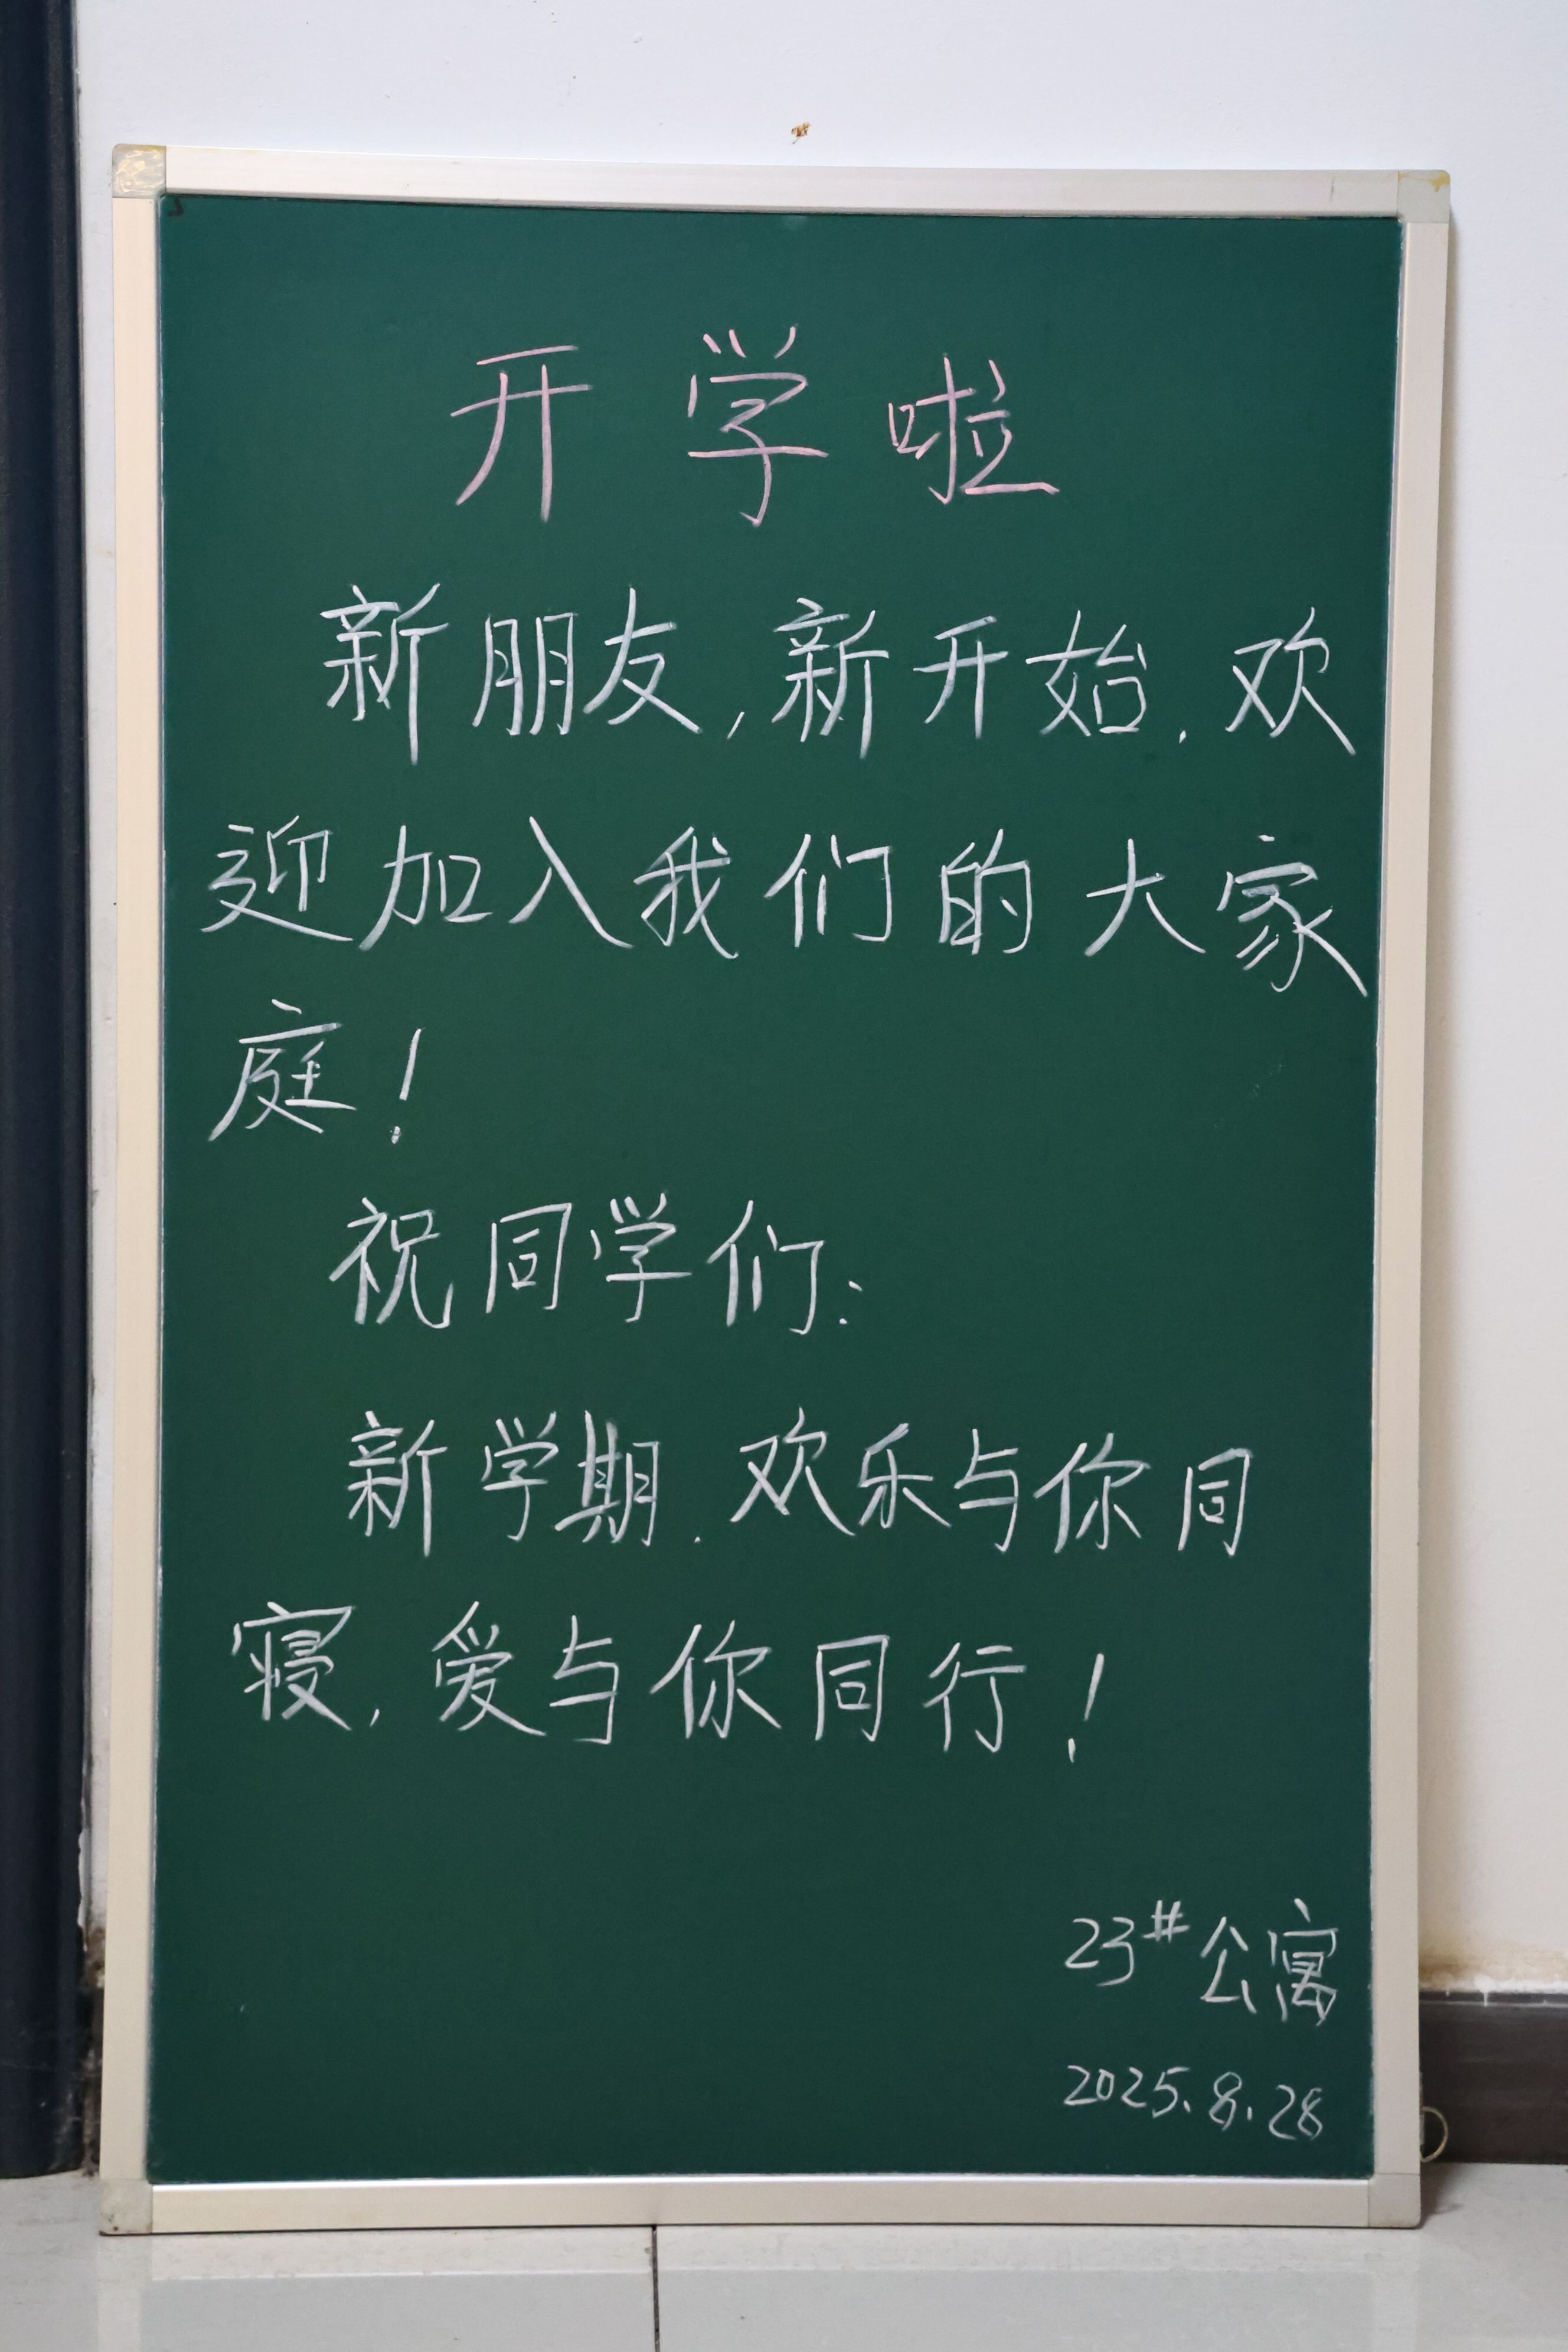 开学啦
新朋友,新开始.欢
迎加入我们的大家
庭!
祝同学们:
新学期.欢乐与你同
寝,爱与你同行!
23#公寓
2025.8.28